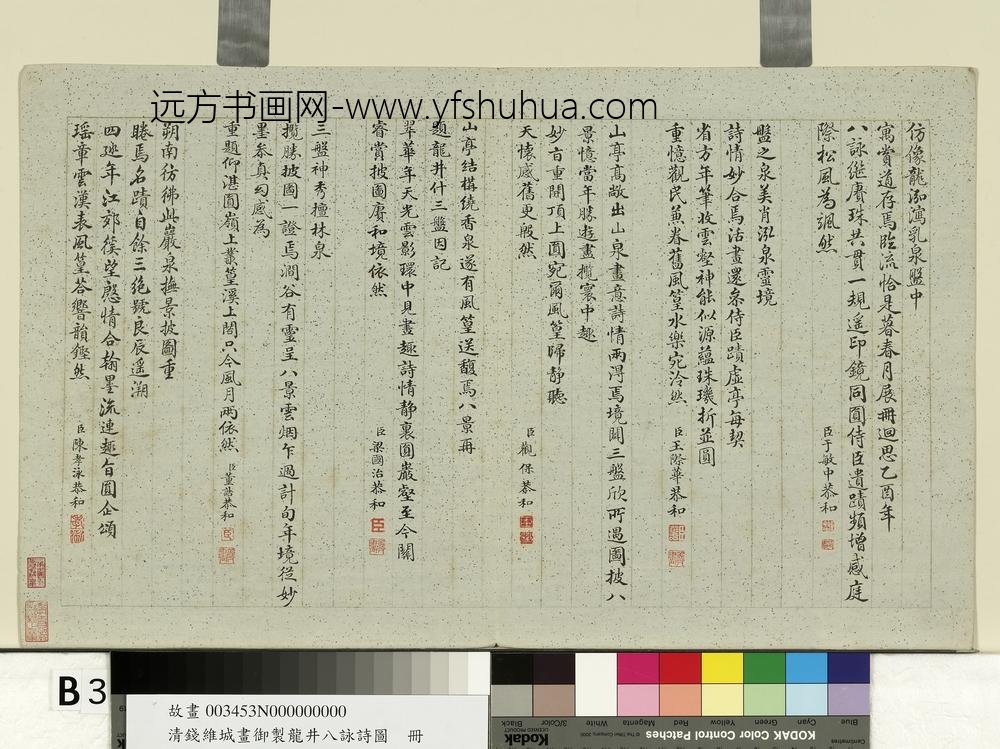 远方书画网-www.yfshuhua.com
仿像龍泓瀉乳泉盤中
寓賞道存焉臨流恰是暮春月展冊迴思乙酉年
八詠繼賡珠共貫一規遥印鏡同圓侍臣遺蹟頻增感庭
際松風為颯然
臣于敏中恭和
盤之泉美肖泓泉靈境
詩情妙合焉沽畫還參侍臣蹟虛亭每契
省方年筆收雲壑神能似源蘊珠璣折並圓
重憶觀民兼眷舊風篁水樂宛泠然
臣王際華恭和
山亭高敞出山泉畫意詩情兩得焉境闢三盤欣所遇圖披八
景憶當年勝遊畫攬寰中趣
妙旨重開頂上圓宛爾風篁歸静聽
天懷感舊更殷然
臣觀保恭和
山亭結構繞香泉遂有風篁送馥焉八景再
題龍井什三盤因記
翠華年天光雲影環中見畫趣詩情静裏圓巖壑至今關
睿賞披圖賡和境依然
臣梁國治恭和
三盤神秀擅林泉
攬勝披圖一證焉澗谷有靈呈八景雲烟乍過計旬年境從妙
墨參真幻感為
重題仰湛圓嶺上叢篁溪上閣只今風月兩依然
臣董誥恭和
朔南彷彿此巖泉撫景披圖重
睠焉名蹟自餘三絶號艮辰遥溯
四巡年江郊篌望慇情合翰墨流連趣旨圓企頌
瑶章雲漢表風篁答響韻鏗然
臣陳孝泳恭和
B 3
故畫 003453N000000000
清錢維城畫御製龍井八詠詩圖 冊
KODAK Color Control Patches
Blue
Cyan
Green
Yellow
Red
Magenta
White
3/Color
Black
Kodak
Centimetres